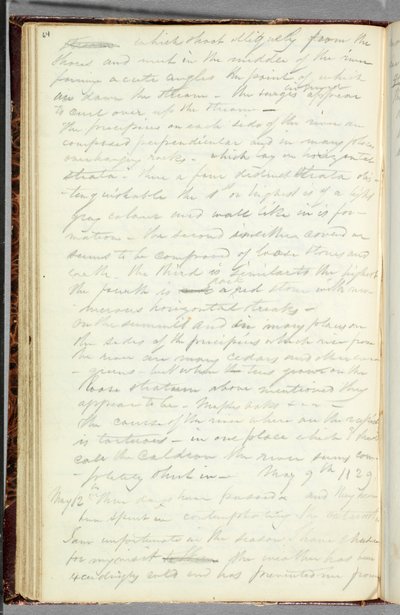 which shoot obliquely from the
shores and meet in the middle of the river
forming acute angles the point of which
are down the stream – the surges appear
to curl over up the stream –
the precipices on each side of the river are
composed perpendicular and in many places
overhanging rocks – which lay in horizontal
strata – there are four distinct strata dis
-tinguishable the 1st or highest is of a light
gray colour and wall like in its for-
mation – the second is either covered or
seems to be composed of loose stones and
earth – the third is similar to the highest
the fourth is a dark red stone with nu-
merous horizontal streaks –
on the summit and in many places on
the sides of the precipices which rise from
the river are many cedars and other ever
-greens – but when trees grow on the
loose stratum above mentioned they
appear to be – Maples oaks &c –
the course of the river where are the rapids
is tortuous – in one place which I shall
call the Caldron the river seems com
-pletely shut in – May 9th 1829
May 12th Three days have passed and they have
been spent in contemplating
I am unfortunate in the season I have chosen
for my visit the weather has been
exceedingly cold and has prevented me from